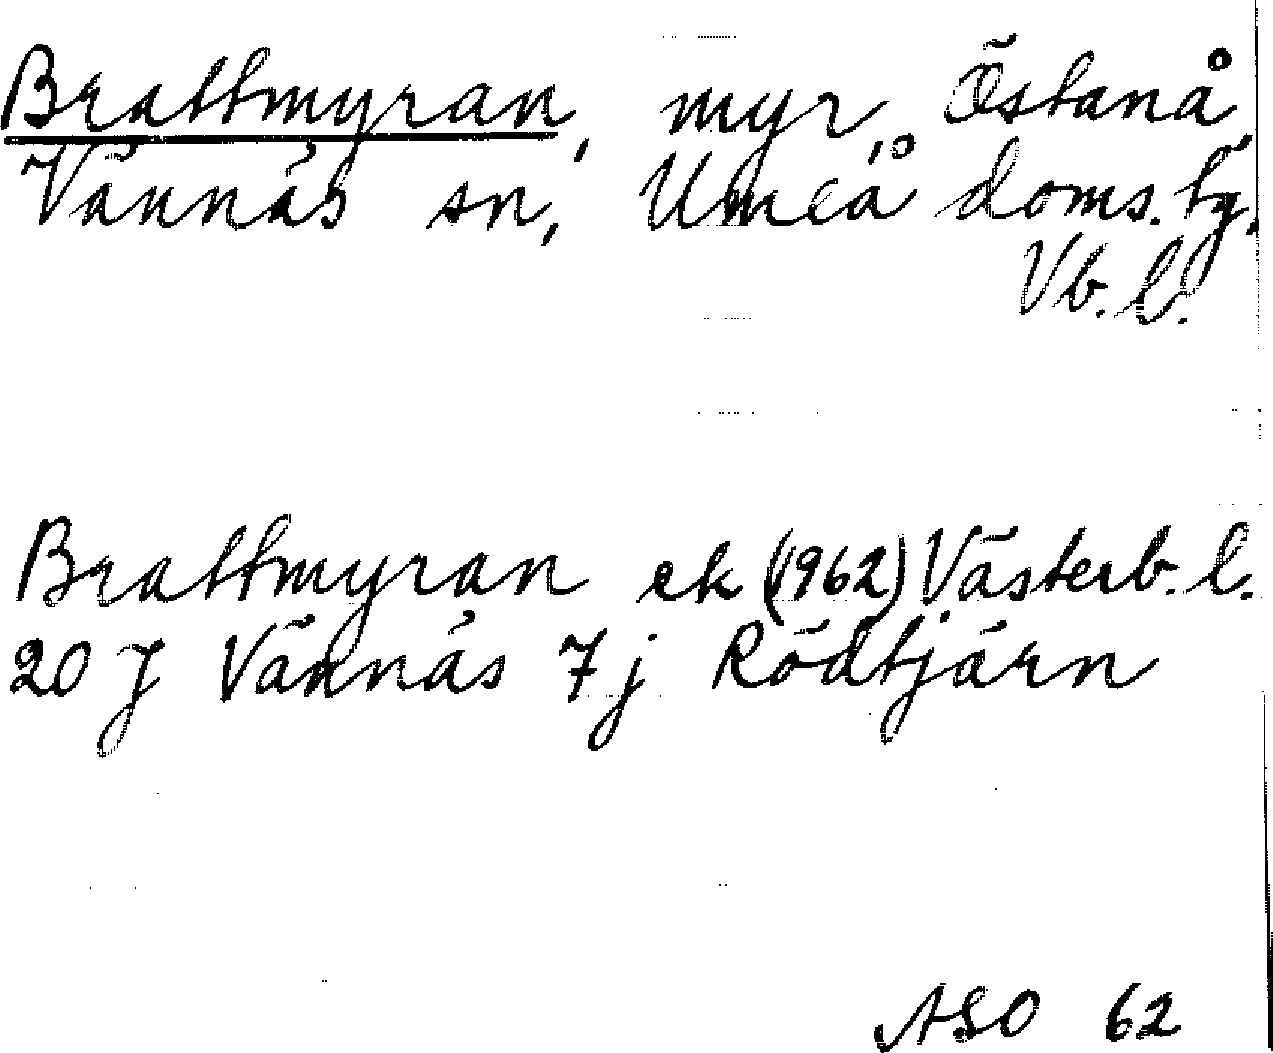 Brattmyran, myr, Östanå,
Vännäs sn, Umeå doms. tg,
Vb. l.
Brattmyran ek (1962) Västerb. l.
20 J Vännäs 7j Rödtjärn
ASO 62